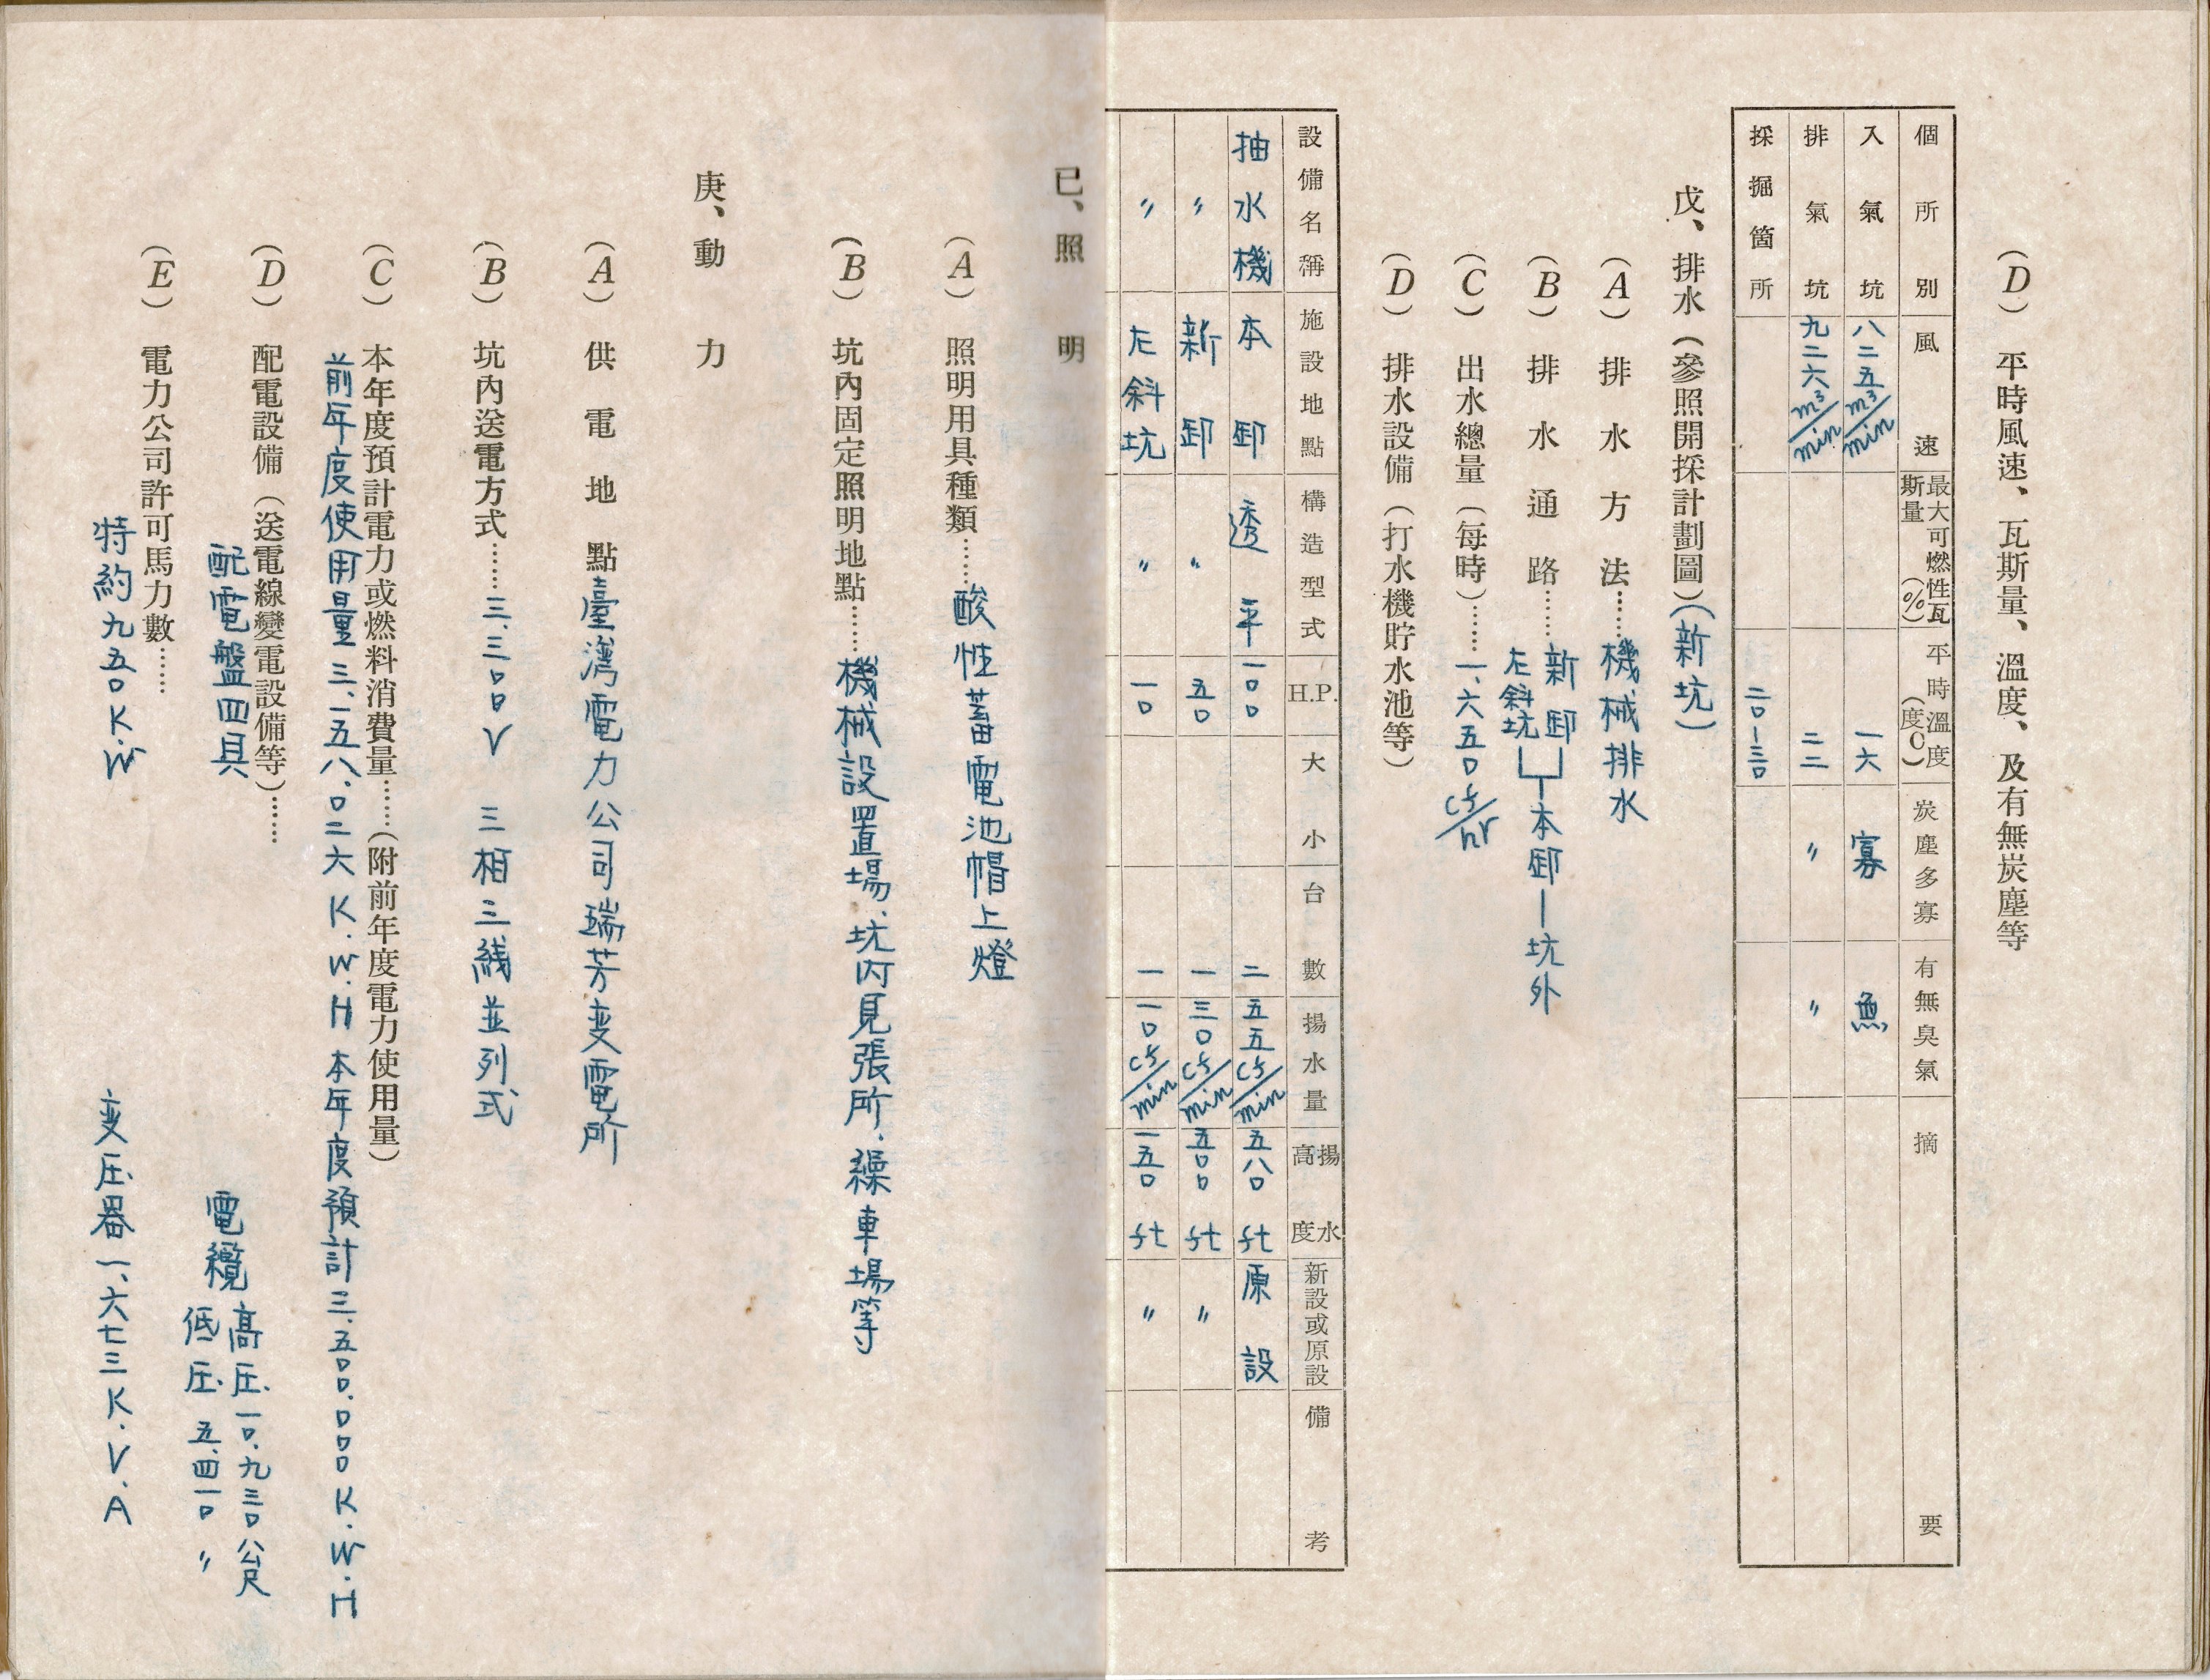 (D) 平時風速、瓦斯量、溫度、及有無炭塵等
個所別 風速 最大可燃性瓦斯量(%) 平時溫度(度C) 炭塵多寡 有無臭氣 摘要
入氣坑 八二五m³/min 一六 寡 無
排氣坑 九二六m³/min 二二 〃 〃
採掘箇所 二〇—三〇
戊、排水(參照開採計劃圖)(新坑)
(A) 排水方法……機械排水
(B) 排水通路……新卸 左斜坑 本卸—坑外
(C) 出水總量(每時)……一、六五〇cf/hr
(D) 排水設備(打水機貯水池等)
設備名稱 施設地點 構造型式 H.P. 大小 台數 揚水量 揚水高度 新設或原設 備考
抽水機 本卸 透平 一〇〇 二 五五cf/min 五八〇ft 原設
〃 新卸 〃 五〇 一 三〇cf/min 五〇〇ft 〃
〃 左斜坑 〃 一〇 一 一〇cf/min 一五〇ft 〃
已、照明
(A) 照明用具種類……酸性蓄電池帽上燈
(B) 坑內固定照明地點……機械設置場、坑內見張所、繰車場等
庚、動力
(A) 供電地點臺灣電力公司瑞芳变電所
(B) 坑內送電方式……三.三〇〇V 三相三綫並列式
(C) 本年度預計電力或燃料消費量……(附前年度電力使用量)
前年度使用量三、一五八、〇二六K.W.H 本年度預計三、五〇〇、〇〇〇K.W.H
(D) 配電設備(送電線變電設備等)……
配電盤四具 電纜 高压一〇、九三〇公尺
低压五、四一〇〃
(E) 電力公司許可馬力數……
特約九五〇K.W 变压器一、六七三K.V.A